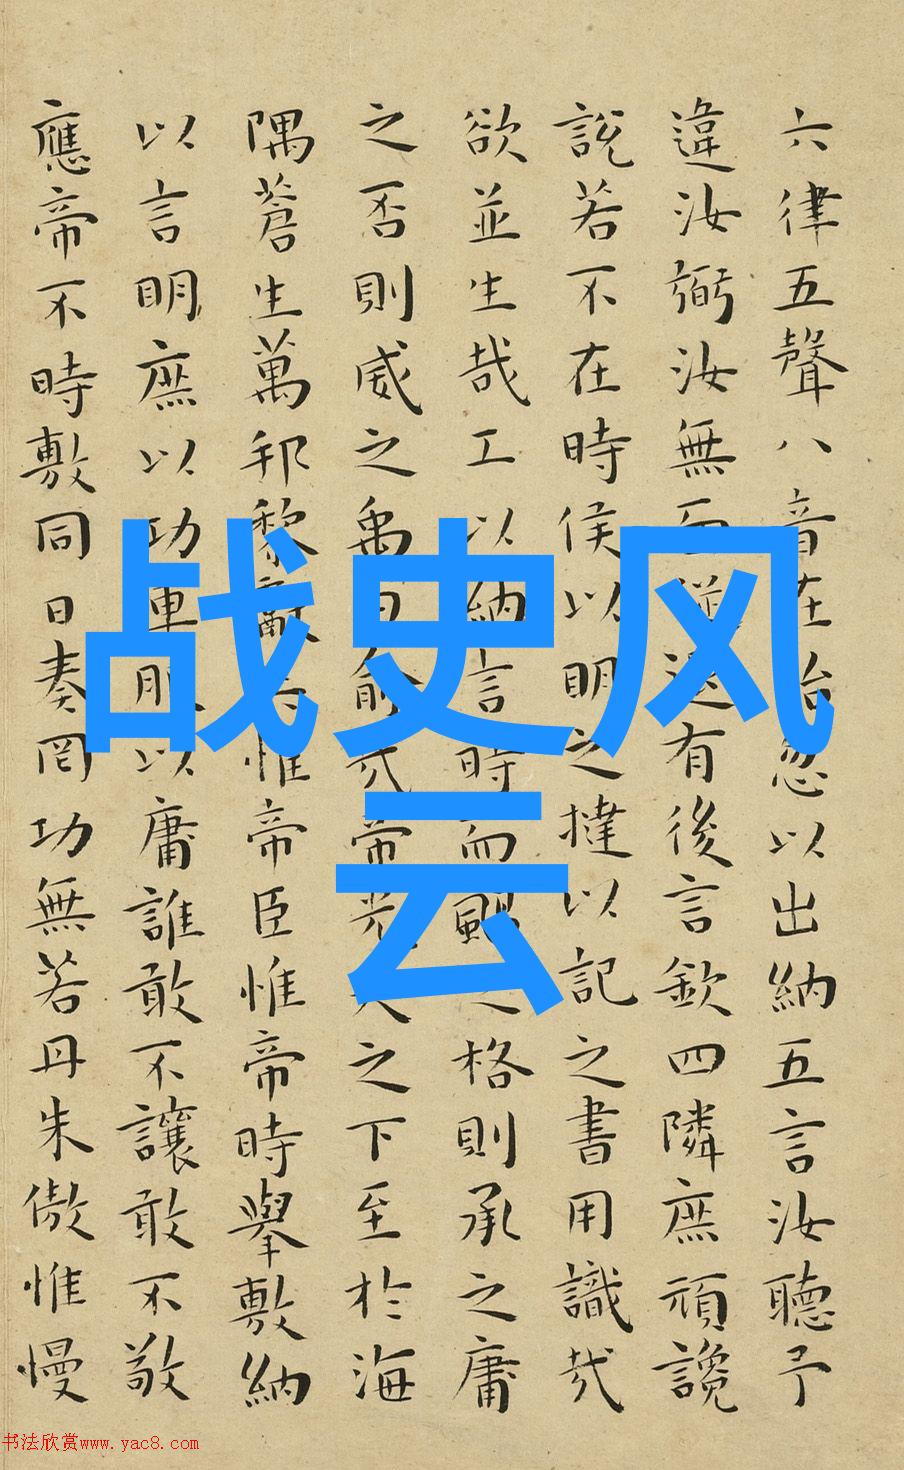 六律五聲八音在治忽以出納五言汝聽予
違汝弼汝無面從退有後言欽四隣庶頑讒
說若不在時侯以明之撻以記之書用識哉
欲並生哉工以納言時而颺之格則承之庸
之否則威之禹曰俞哉帝光天之下至於海
隅蒼生萬邦黎獻共惟帝臣惟帝時舉敷納
以言明庶以功車服以庸誰敢不讓敢不敬
應帝不時敷同日奏罔功無若丹朱傲惟慢
战史风
云
书法欣赏www.yac8.com